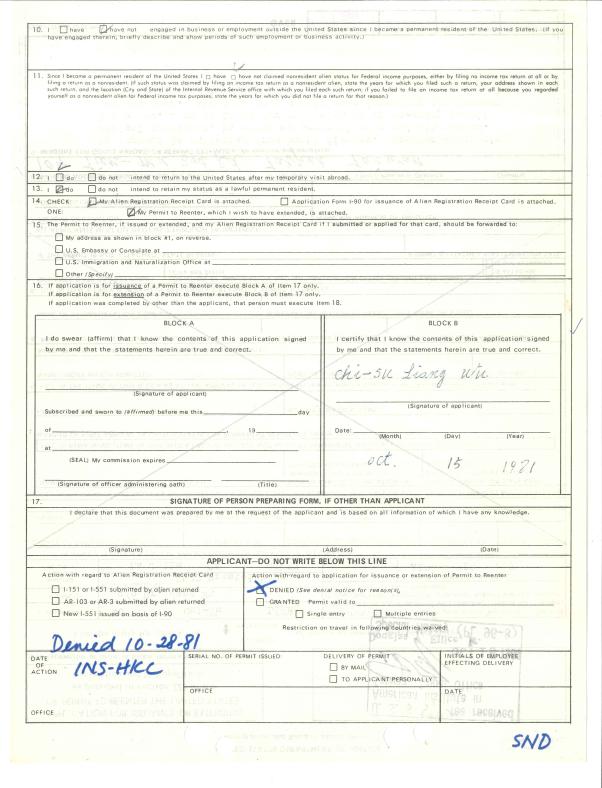 10. I have have not engaged in business or employment outside the United States since I became a permanent resident of the United States. (If you
have engaged therein, briefly describe and show periods of such employment or business activity.)
11. Since I became a permanent resident of the United States I have have not claimed nonresident alien status for Federal income purposes, either by filing no income tax return at all or by
filing a return as a nonresident. (If such status was claimed by filing an income tax return as a nonresident alien, state the years for which you filed such a return, your address shown in each
such return, and the location (City and State) of the Internal Revenue Service office with which you filed each such return. If you failed to file an income tax return at all because you regarded
yourself as a nonresident alien for Federal income tax purposes, state the years for which you did not file a return for that reason.)
12. I do do not intend to return to the United States after my temporary visit abroad.
13. I do do not intend to retain my status as a lawful permanent resident.
14. CHECK My Alien Registration Receipt Card is attached. Application Form I-90 for issuance of Alien Registration Receipt Card is attached.
ONE: My Permit to Reenter, which I wish to have extended, is attached.
15. The Permit to Reenter, if issued or extended, and my Alien Registration Receipt Card if I submitted or applied for that card, should be forwarded to:
My address as shown in block #1, on reverse.
U.S. Embassy or Consulate at
U.S. Immigration and Naturalization Office at
Other (Specify)
16. If application is for issuance of a Permit to Reenter execute Block A of Item 17 only.
If application is for extension of a Permit to Reenter execute Block B of Item 17 only.
If application was completed by other than the applicant, that person must execute Item 18.
BLOCK A
I do swear (affirm) that I know the contents of this application signed
by me and that the statements herein are true and correct.
(Signature of applicant)
Subscribed and sworn to (affirmed) before me this day
of , 19
at
(SEAL) My commission expires
(Signature of officer administering oath) (Title)
BLOCK B
I certify that I know the contents of this application signed
by me and that the statements herein are true and correct.
Chi-su Liang Wu
(Signature of applicant)
Date:
(Month) (Day) (Year)
oct. 15 1981
17. SIGNATURE OF PERSON PREPARING FORM, IF OTHER THAN APPLICANT
I declare that this document was prepared by me at the request of the applicant and is based on all information of which I have any knowledge.
(Signature) (Address) (Date)
APPLICANT—DO NOT WRITE BELOW THIS LINE
Action with regard to Alien Registration Receipt Card
I-151 or I-551 submitted by alien returned
AR-103 or AR-3 submitted by alien returned
New I-551 issued on basis of I-90
Action with regard to application for issuance or extension of Permit to Reenter
DENIED (See denial notice for reason(s).
GRANTED Permit valid to
Single entry Multiple entries
Restriction on travel in following countries waived:
Denied 10-28-81
INS-HKC
DATE
OF
ACTION
OFFICE
SERIAL NO. OF PERMIT ISSUED
OFFICE
DELIVERY OF PERMIT
BY MAIL
TO APPLICANT PERSONALLY
INITIALS OF EMPLOYEE
EFFECTING DELIVERY
DATE
SND